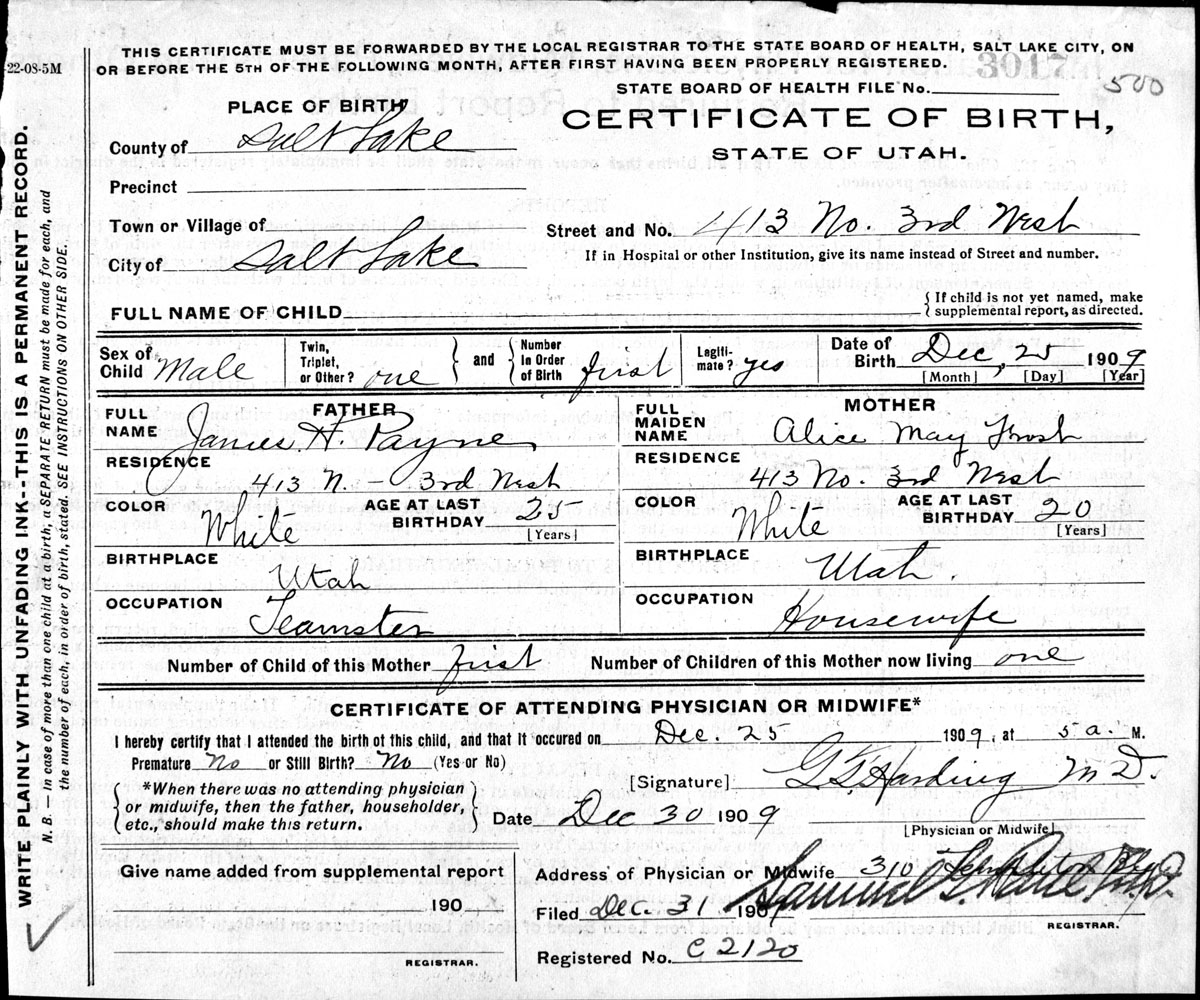 THIS CERTIFICATE MUST BE FORWARDED BY THE LOCAL REGISTRAR TO THE STATE BOARD OF HEALTH, SALT LAKE CITY, ON
OR BEFORE THE 5TH OF THE FOLLOWING MONTH, AFTER FIRST HAVING BEEN PROPERLY REGISTERED.
-22-08-5M
30175
STATE BOARD OF HEALTH FILE No.
500
PLACE OF BIRTH
CERTIFICATE OF BIRTH,
STATE OF UTAH.
County of Salt Lake
Precinct
Town or Village of
Street and No. 413 No. 3rd West
City of Salt Lake
If in Hospital or other Institution, give its name instead of Street and number.
FULL NAME OF CHILD
{ If child is not yet named, make
supplemental report, as directed.
Sex of Child Male
Twin, Triplet, or Other? one } and { Number In Order of Birth first
Legiti-mate? yes
Date of Birth Dec, 25 1909
[Month] [Day] [Year]
FATHER
FULL NAME James H. Payne
RESIDENCE
413 N. - 3rd West
COLOR White
AGE AT LAST BIRTHDAY 25
[Years]
BIRTHPLACE
Utah
OCCUPATION
Teamster
MOTHER
FULL MAIDEN NAME Alice May Frost
RESIDENCE
413 No. 3rd West
COLOR White
AGE AT LAST BIRTHDAY 20
[Years]
BIRTHPLACE
Utah.
OCCUPATION
Housewife
Number of Child of this Mother first Number of Children of this Mother now living one
CERTIFICATE OF ATTENDING PHYSICIAN OR MIDWIFE*
I hereby certify that I attended the birth ot this child, and that it occured on Dec. 25 1909, at 5 a. M.
Premature No or Still Birth? No (Yes or No)
[Signature] Harding M D.
{ *When there was no attending physician
or midwife, then the father, householder,
etc., should make this return. }
Date Dec 30 1909
[Physician or Midwife]
Give name added from supplemental report
190
REGISTRAR.
Address of Physician or Midwife 310
Filed Dec. 31 1909
Samuel G.
REGISTRAR.
Registered No. C 2120
WRITE PLAINLY WITH UNFADING INK--THIS IS A PERMANENT RECORD.
N. B. — In case of more than one child at a birth, a SEPARATE RETURN must be made for each, and
the number of each, in order of birth, stated. SEE INSTRUCTIONS ON OTHER SIDE.